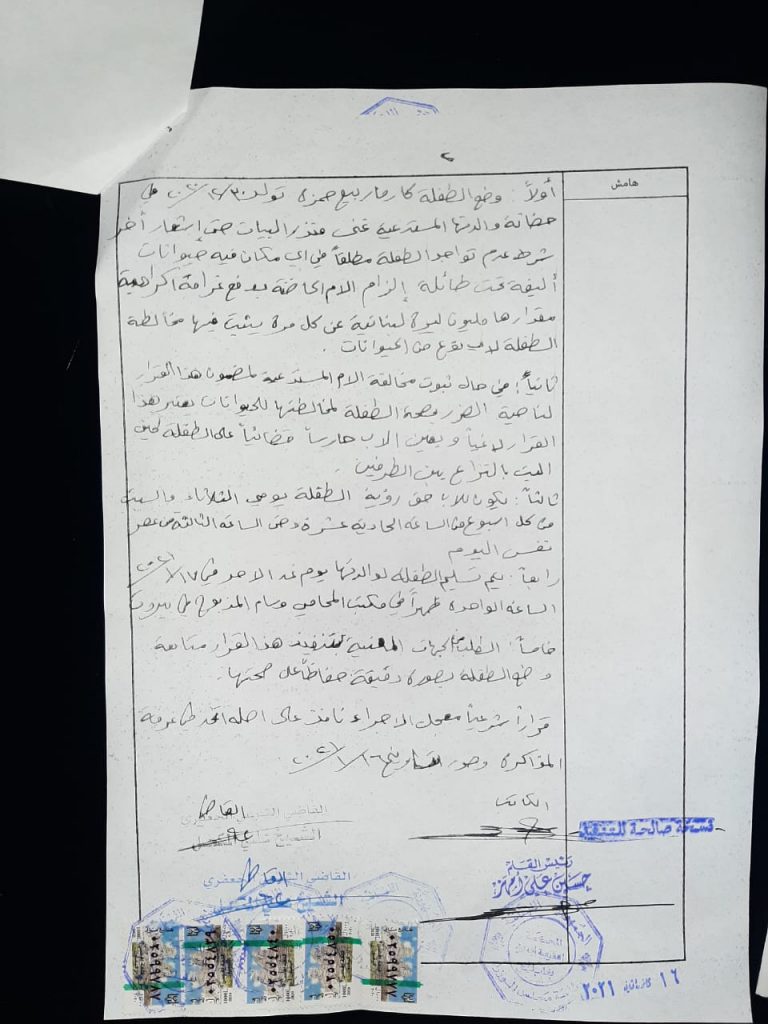 ٢
هامش
أولاً: وضع الطفلة كارما ربيع حمزه تولد ٣٠/١٢/٢٠٢٠ في
حضانة والدتها المستدعية غنى منذر البيات حتى إشعار أخر
شرط عدم تواجد الطفلة مطلقاً في اي مكان فيه حيوانات
أليفة تحت طائلة إلزام الام الحاضنة بدفع غرامة اكراهية
مقدارها مليون ليرة لبنانية عن كل مرة يثبت فيها مخالطة
الطفلة لاي نوع من الحيوانات.
ثانياً: في حال ثبوت مخالفة الام المستدعية لمضمون هذا القرار
لناحية الضرر بصحة الطفلة لمخالطتها للحيوانات يعتبر هذا
القرار لاغياً ويعين الاب حارساً قضائياً على الطفلة لحين
البت بالنزاع بين الطرفين.
ثالثاً: يكون للاب حق رؤية الطفلة يومي الثلاثاء والسبت
من كل اسبوع من الساعه الحادية عشرة وحتى الساعه الثالثة من عصر
نفس اليوم
رابعاً: يتم تسليم الطفله لوالدتها يوم غد الاحد في ١٧/١/٢٠٢١
الساعه الواحدة ظهراً في مكتب المحامي وسام المذبوح في بيروت
خامساً: الطلب من الجهات المعنية بتنفيذ هذا القرار متابعة
وضع الطفلة بصورة دقيقة حفاظاً على صحتها.
قراراً شرعياً معجل الاجراء نافذ على اصله اتخذ في غرفة
المذاكرة وصدر بتاريخ ١٦/١/٢٠٢١
الكاتب
القاضي
القاضي الشرعي الجعفري
الشيخ
نسخة صالحة للتنفيذ
رئيس القلم
حسين علي أمهز
القاضي الجعفري
الشيخ
١٦ كانون٢ ٢٠٢١